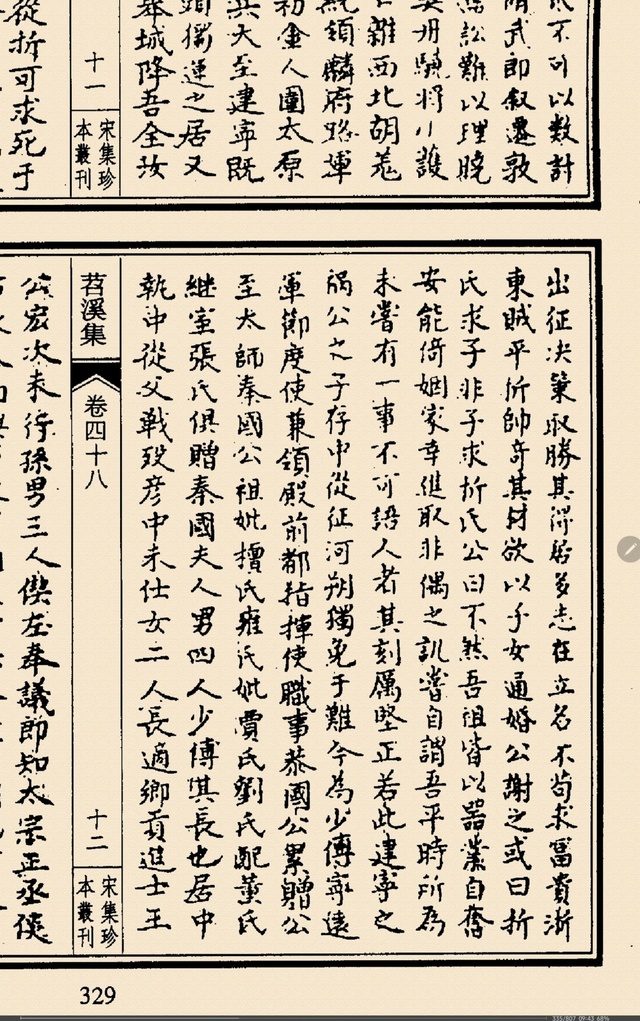 不可以數計
武郎敘遷敦
訟難以理曉
西北胡羗
統領麟府路軍
初金人圍太原
兵大至建寧既
頭徇運之居又
舉城降吾全汝
十一
宋集珍本叢刊
從折可求死于
出征决策取勝其得居多志在立名不苟求富貴浙
東賊平折帥奇其材欲以子女通婚公謝之或曰折
氏求子非子求折氏公曰不然吾祖皆以器業自奮
安能倚姻家幸進取非偶之訊嘗自謂吾平時所為
未嘗有一事不可語人者其刻厲堅正若此建寧之
禍公之子存中從征河朔獨免于難今為少傅寧遠
軍節度使兼領殿前都指揮使職事恭國公累贈公
至太師秦國公祖妣擅氏雍氏妣賈氏劉氏配董氏
継室張氏俱贈秦國夫人男四人少傅其長也居中
執中從父戰歿彦中未仕女二人長適鄉貢進士王
苕溪集
卷四十八
十二
宋集珍本叢刊
公宏次未行孫男三人偰左奉議郎知太宗正丞俁
329
335/807 09:43 68%